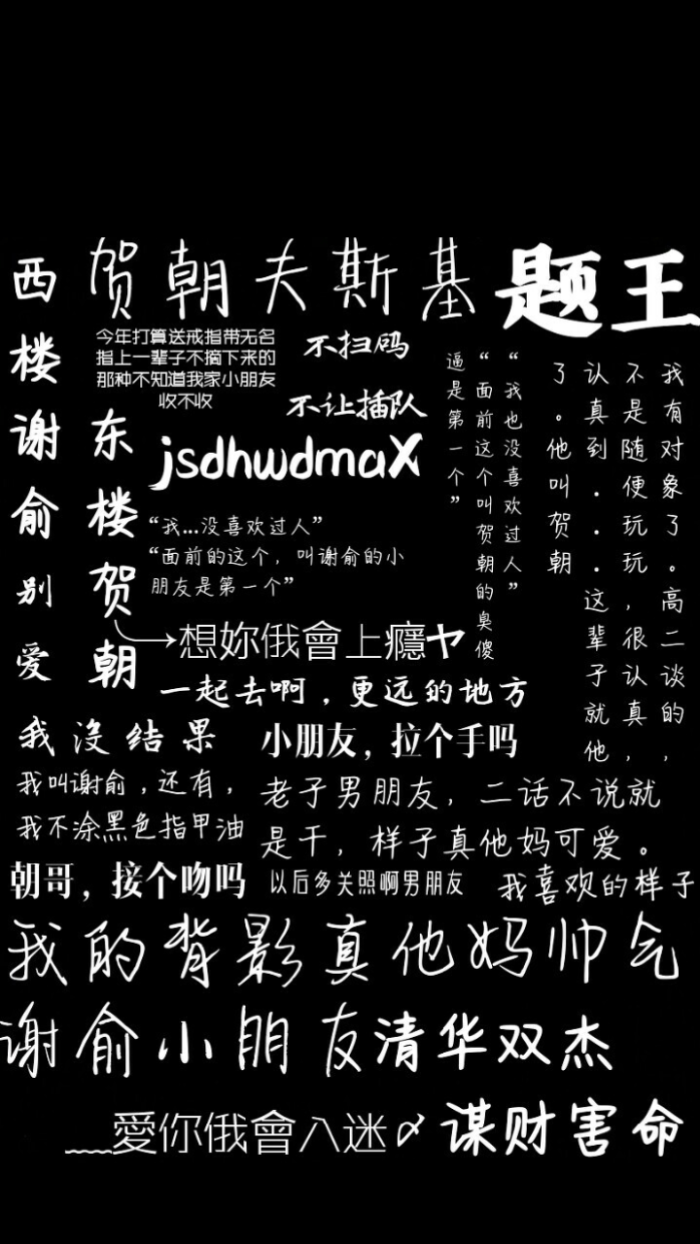 贺朝夫斯基
题王
西楼谢俞
别爱
东楼贺朝
今年打算送戒指带无名
指上一辈子不摘下来的
那种不知道我家小朋友
收不收
不扫码
不让插队
jsdhwdmaX
“我...没喜欢过人”
“面前的这个，叫谢俞的小
朋友是第一个”
“我也没喜欢过人”
“面前这个叫贺朝的臭傻
逼是第一个”
我有对象了。高二谈的，
不是随便玩玩，很认真，
认真到...这辈子就他
了。他叫贺朝
想妳俄會上癮ヤ
一起去啊，更远的地方
我没结果
小朋友，拉个手吗
我叫谢俞,还有，
我不涂黑色指甲油
老子男朋友，二话不说就
是干，样子真他妈可爱。
朝哥，接个吻吗
以后多关照啊男朋友
我喜欢的样子
我的背影真他妈帅气
谢俞小朋友
清华双杰
﹏愛你俄會入迷〆
谋财害命